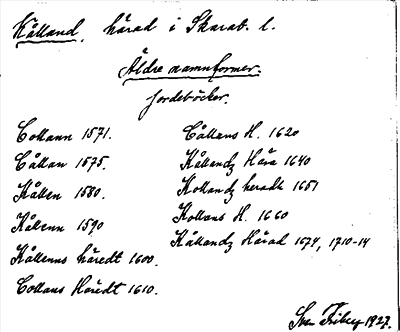 Kålland, härad i Skarab. l.
Äldre namnformer.
Jordeböcker.
Collann 1571.
Cållan 1575.
Kållen 1580.
Kållenn 1590
Kållenns häredt 1600.
Collans Häredt 1610.
Cållans H. 1620
Kållandz Hära 1640
Kollandz heradt 1651
Kollans H. 1660
Kållandz Härad 1674, 1710-14
Ivar 1927.